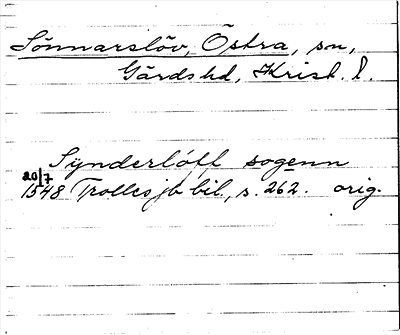 Sönnarslöv, Östra, sn,
Gärds hd, Krist. l.
Synderlöff sogenn
20/7
1548 Trolles jb bil, s. 262. orig.